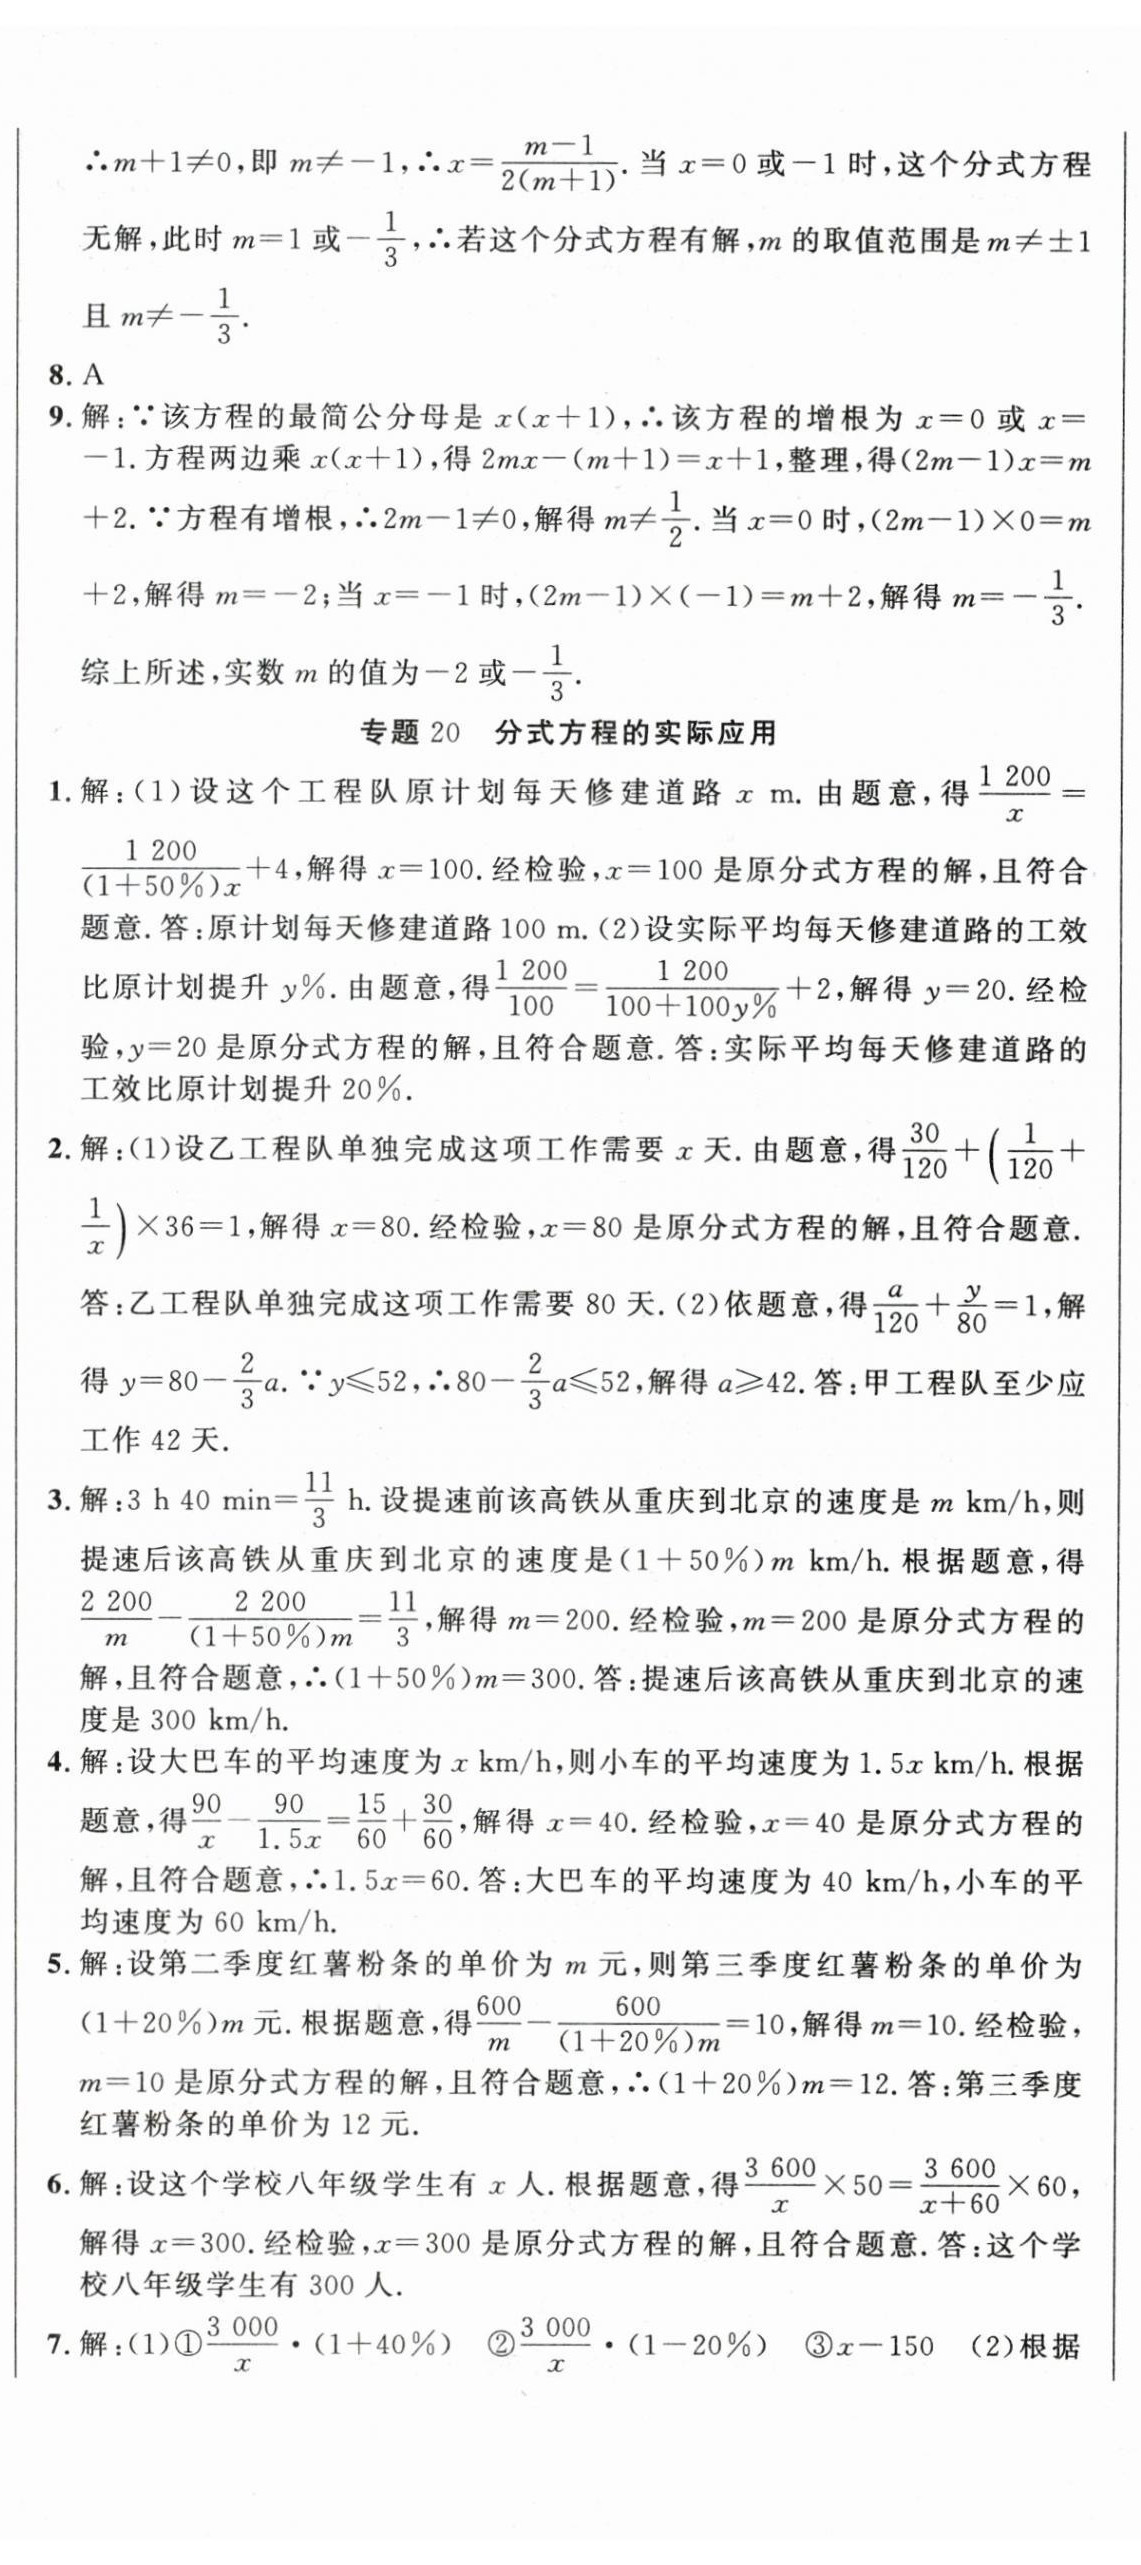 ∴m+1≠0,即 m≠-1,∴x=\frac{m-1}{2(m+1)}.当 x=0 或-1 时,这个分式方程
无解,此时 m=1 或-\frac{1}{3},∴若这个分式方程有解,m 的取值范围是 m≠±1
且 m≠-\frac{1}{3}.
8. A
9. 解:∵该方程的最简公分母是 x(x+1),∴该方程的增根为 x=0 或 x=
-1.方程两边乘 x(x+1),得 2mx-(m+1)=x+1,整理,得(2m-1)x=m
+2.∵方程有增根,∴2m-1≠0,解得 m≠\frac{1}{2}.当 x=0 时,(2m-1)×0=m
+2,解得 m=-2;当 x=-1 时,(2m-1)×(-1)=m+2,解得 m=-\frac{1}{3}.
综上所述,实数 m 的值为-2 或-\frac{1}{3}.
专题 20 分式方程的实际应用
1. 解:(1)设这个工程队原计划每天修建道路 x m.由题意,得\frac{1 200}{x}=
\frac{1 200}{(1+50%)x}+4,解得 x=100.经检验,x=100 是原分式方程的解,且符合
题意.答:原计划每天修建道路 100 m.(2)设实际平均每天修建道路的工效
比原计划提升 y%.由题意,得\frac{1 200}{100}=\frac{1 200}{100+100y%}+2,解得 y=20.经检
验,y=20 是原分式方程的解,且符合题意.答:实际平均每天修建道路的
工效比原计划提升 20%.
2. 解:(1)设乙工程队单独完成这项工作需要 x 天.由题意,得\frac{30}{120}+(\frac{1}{120}+
\frac{1}{x})×36=1,解得 x=80.经检验,x=80 是原分式方程的解,且符合题意.
答:乙工程队单独完成这项工作需要 80 天.(2)依题意,得\frac{a}{120}+\frac{y}{80}=1,解
得 y=80-\frac{2}{3}a.∵y≤52,∴80-\frac{2}{3}a≤52,解得 a≥42.答:甲工程队至少应
工作 42 天.
3. 解:3 h 40 min=\frac{11}{3} h.设提速前该高铁从重庆到北京的速度是 m km/h,则
提速后该高铁从重庆到北京的速度是(1+50%)m km/h.根据题意,得
\frac{2 200}{m}-\frac{2 200}{(1+50%)m}=\frac{11}{3},解得 m=200.经检验,m=200 是原分式方程的
解,且符合题意,∴(1+50%)m=300.答:提速后该高铁从重庆到北京的速
度是 300 km/h.
4. 解:设大巴车的平均速度为 x km/h,则小车的平均速度为 1.5x km/h.根据
题意,得\frac{90}{x}-\frac{90}{1.5x}=\frac{15}{60}+\frac{30}{60},解得 x=40.经检验,x=40 是原分式方程的
解,且符合题意,∴1.5x=60.答:大巴车的平均速度为 40 km/h,小车的平
均速度为 60 km/h.
5. 解:设第二季度红薯粉条的单价为 m 元,则第三季度红薯粉条的单价为
(1+20%)m 元.根据题意,得\frac{600}{m}-\frac{600}{(1+20%)m}=10,解得 m=10.经检验,
m=10 是原分式方程的解,且符合题意,∴(1+20%)m=12.答:第三季度
红薯粉条的单价为 12 元.
6. 解:设这个学校八年级学生有 x 人.根据题意,得\frac{3 600}{x}×50=\frac{3 600}{x+60}×60,
解得 x=300.经检验,x=300 是原分式方程的解,且符合题意.答:这个学
校八年级学生有 300 人.
7. 解:(1)①\frac{3 000}{x}·(1+40%) ②\frac{3 000}{x}·(1-20%) ③x-150 (2)根据